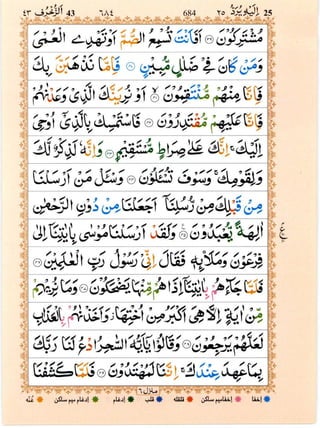 ٤٣ اَلزُّخْرُف 43 ٦٨٤ 684 ٢٥ اِلَيْهِ يُرَدُّ 25
مُشْتَرِكُوْنَ ۝٣٩ اَفَاَنْتَ تُسْمِعُ الصُّمَّ اَوْ تَهْدِي الْعُمْيَ
وَمَنْ كَانَ فِيْ ضَلٰلٍ مُّبِيْنٍ ۝٤٠ فَاِمَّا نَذْهَبَنَّ بِكَ
فَاِنَّا مِنْهُمْ مُّنْتَقِمُوْنَ ۝٤١ اَوْ نُرِيَنَّكَ الَّذِيْ وَعَدْنٰهُمْ
فَاِنَّا عَلَيْهِمْ مُّقْتَدِرُوْنَ ۝٤٢ فَاسْتَمْسِكْ بِالَّذِيْٓ اُوْحِيَ
اِلَيْكَ ۚ اِنَّكَ عَلٰى صِرَاطٍ مُّسْتَقِيْمٍ ۝٤٣ وَاِنَّهٗ لَذِكْرٌ لَّكَ
وَلِقَوْمِكَ ۚ وَسَوْفَ تُسْـَٔلُوْنَ ۝٤٤ وَسْـَٔلْ مَنْ اَرْسَلْنَا
مِنْ قَبْلِكَ مِنْ رُّسُلِنَآ اَجَعَلْنَا مِنْ دُوْنِ الرَّحْمٰنِ
اٰلِهَةً يُّعْبَدُوْنَ ۝٤٥ وَلَقَدْ اَرْسَلْنَا مُوْسٰى بِاٰيٰتِنَآ اِلٰى
فِرْعَوْنَ وَمَلَا۟ئِهٖ فَقَالَ اِنِّيْ رَسُوْلُ رَبِّ الْعٰلَمِيْنَ ۝٤٦
فَلَمَّا جَآءَهُمْ بِاٰيٰتِنَآ اِذَا هُمْ مِّنْهَا يَضْحَكُوْنَ ۝٤٧ وَمَا نُرِيْهِمْ
مِّنْ اٰيَةٍ اِلَّا هِيَ اَكْبَرُ مِنْ اُخْتِهَا ۡ وَاَخَذْنٰهُمْ بِالْعَذَابِ
لَعَلَّهُمْ يَرْجِعُوْنَ ۝٤٨ وَقَالُوْا يٰٓاَيُّهَ السّٰحِرُ ادْعُ لَنَا رَبَّكَ
بِمَا عَهِدَ عِنْدَكَ ۚ اِنَّنَا لَمُهْتَدُوْنَ ۝٤٩ فَلَمَّا كَشَفْنَا
منزل ٦
اخفا اخفا میم ساکن قلقله قلب ادغام ادغام میم ساکن غنّه